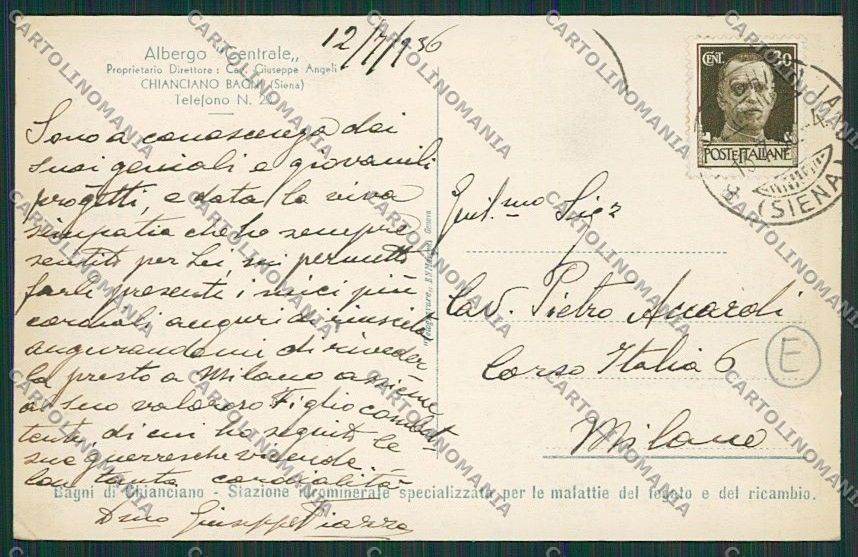 Albergo "Centrale"
Proprietario Direttore: Cav. Giuseppe Angeli
CHIANCIANO BAGNI (Siena)
Telefono N. 2
12/7/936
CENT. 30
POSTE ITALIANE
(SIENA)
Sono a conoscenza dei
suoi geniali e giovanili
progetti, e data la viva
simpatia che ho sempre
sentito per Lei, mi permetto
farle presenti i miei più
cordiali auguri di riuscita
augurandomi di riveder
la presto a Milano assieme
al suo valoroso Figlio combat-
tente, di cui ho seguito le
sue guerresche vicende.
Con tanta cordialità
Giuseppe Piazza
Gent.mo Sig.
Cav. Pietro Accardi
Corso Italia 6
Milano
E
Bagni di Chianciano - Stazione Idrominerale specializzata per le malattie del fegato e del ricambio.
CARTOLINOMANIA